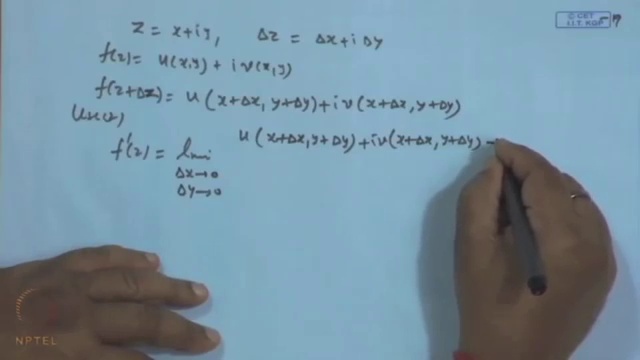 © CET
I.I.T. KGP
z = x+iy, Δz = Δx+iΔy
f(z) = u(x,y) + i v(x,y)
f(z+Δz) = u(x+Δx, y+Δy) + i v(x+Δx, y+Δy)
f'(z) = lim u(x+Δx, y+Δy) + i v(x+Δx, y+Δy) -
Δx→0
Δy→0
NPTEL